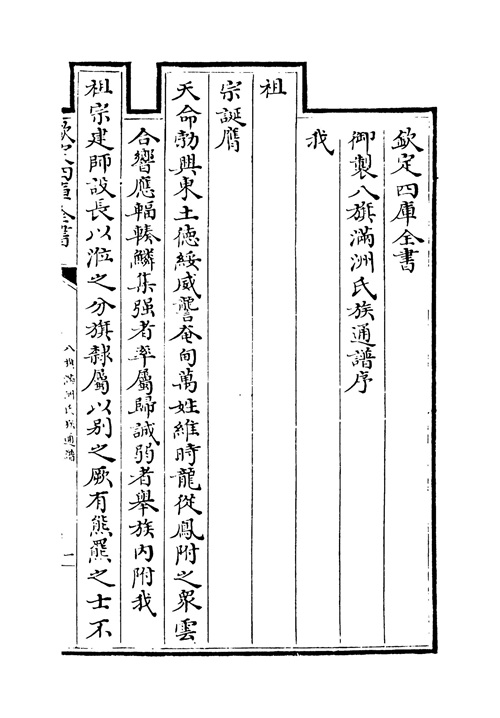 欽定四庫全書
御製八旗滿洲氏族通譜序
我
祖
宗誕膺
天命勃興東土徳綏威讋奄甸萬姓維時龍從鳳附之衆雲
合響應輻輳鱗集强者率屬歸誠弱者舉族内附我
祖宗建師設長以涖之分旗隸屬以别之厥有熊羆之士不
欽定四庫全書
八旗滿洲氏族通譜
一